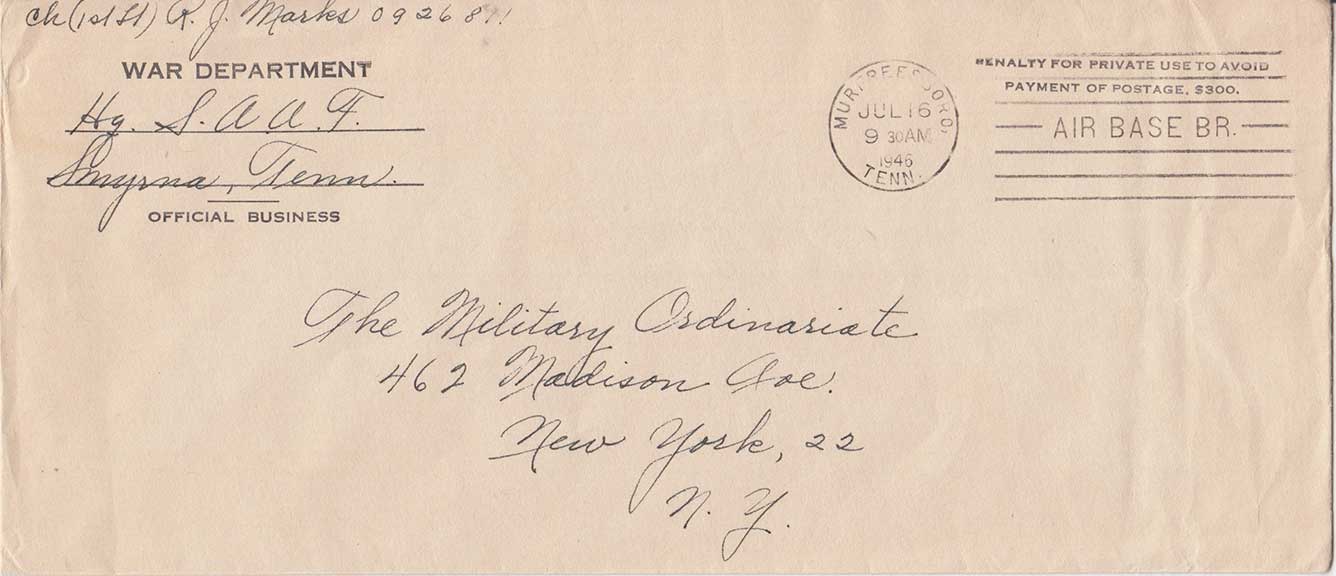 Ch (1st Lt) R. J. Marks 0926811
WAR DEPARTMENT
Hq. S. A. A. F.
Smyrna, Tenn.
OFFICIAL BUSINESS
MURFREESBORO,
JUL 16
9 30 AM
1946
TENN.
PENALTY FOR PRIVATE USE TO AVOID
PAYMENT OF POSTAGE, $300.
AIR BASE BR.
The Military Ordinariate
462 Madison Ave.
New York, 22
N. Y.